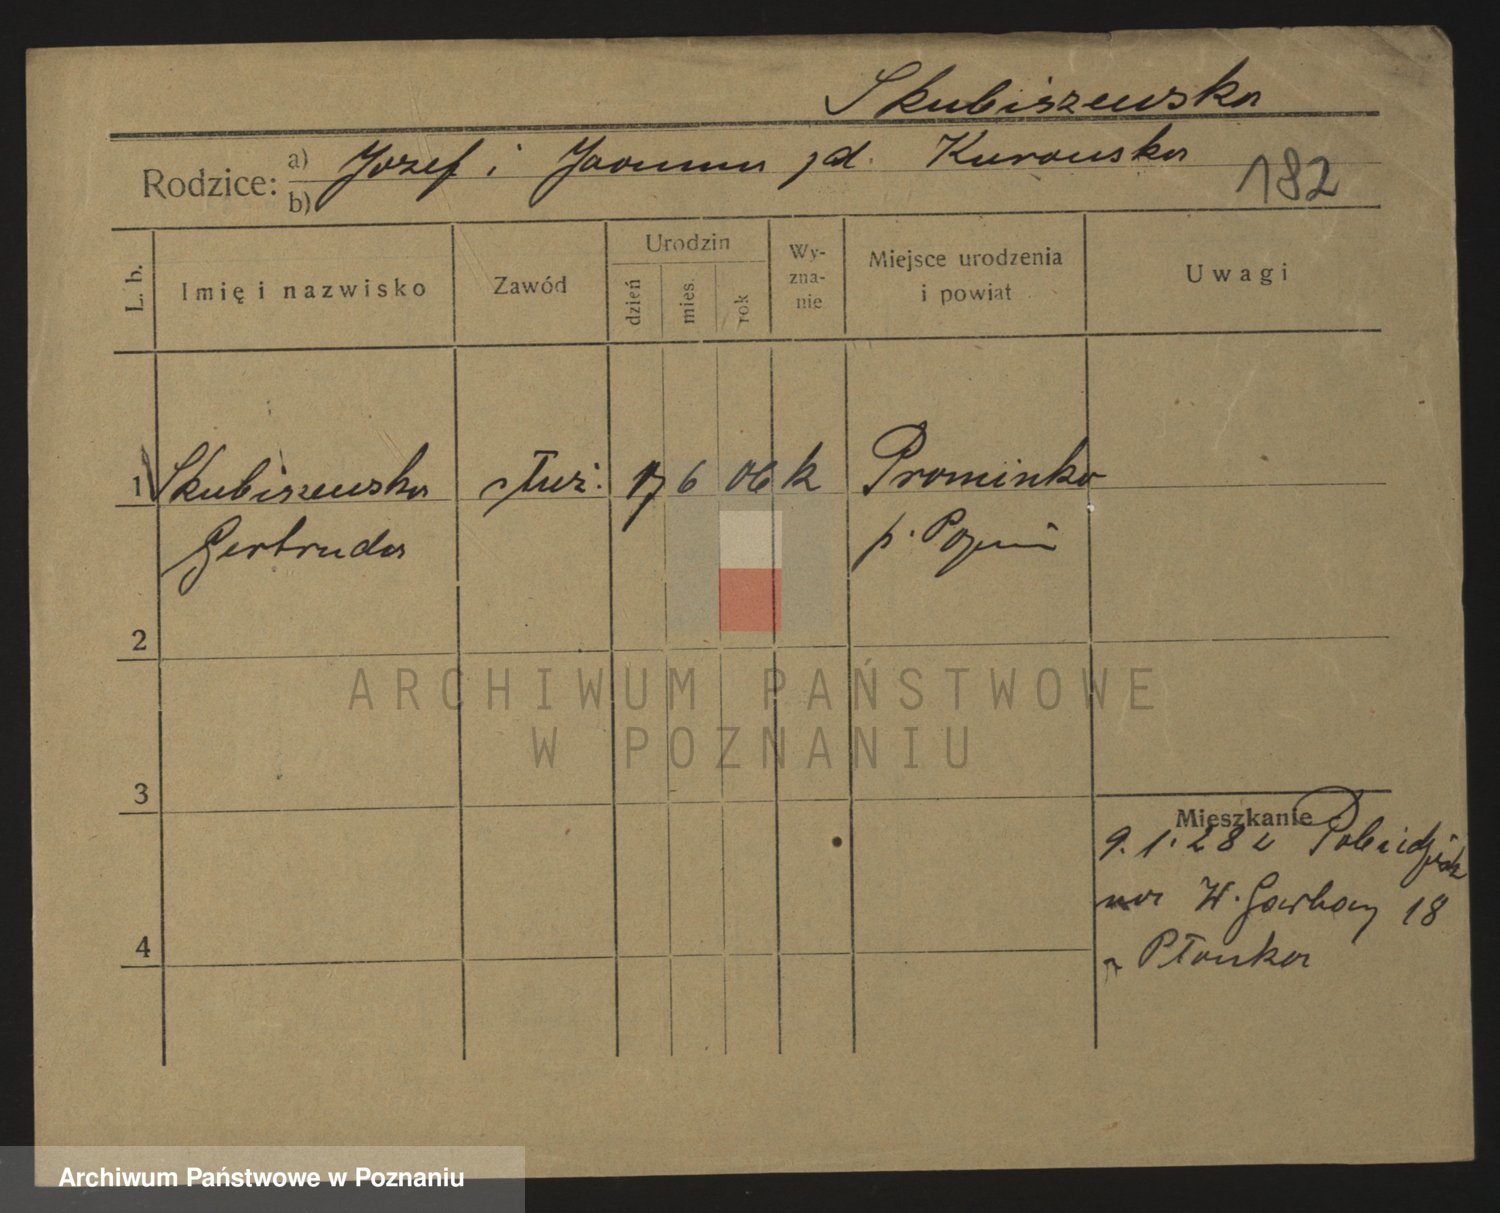 Skubiszewska
Rodzice: a) Jozef i Joanna zd. Kurowska
b)
182
L. b.
Imię i nazwisko
Zawód
Urodzin
dzień
mies.
rok
Wy-
zna-
nie
Miejsce urodzenia
i powiat
Uwagi
1 Skubiszewska służ. 17 6 06 k Prominko
Gertruda p. Pozn
2
3
4
Mieszkanie
9.1.28 z Pobiedzisk
na W. Garbary 18
Płonka
ARCHIWUM PAŃSTWOWE
W POZNANIU
Archiwum Państwowe w Poznaniu